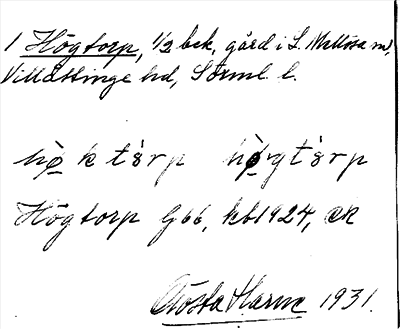 1 Högtorp, 1/2 bck, gård i L. Mellösa sn,
Villåttinge hd, Sörml. l.
hø̀k tɷrp hø̀gtɷrp
Högtorp G66, kb1924, ek
Gösta Harne 1931.